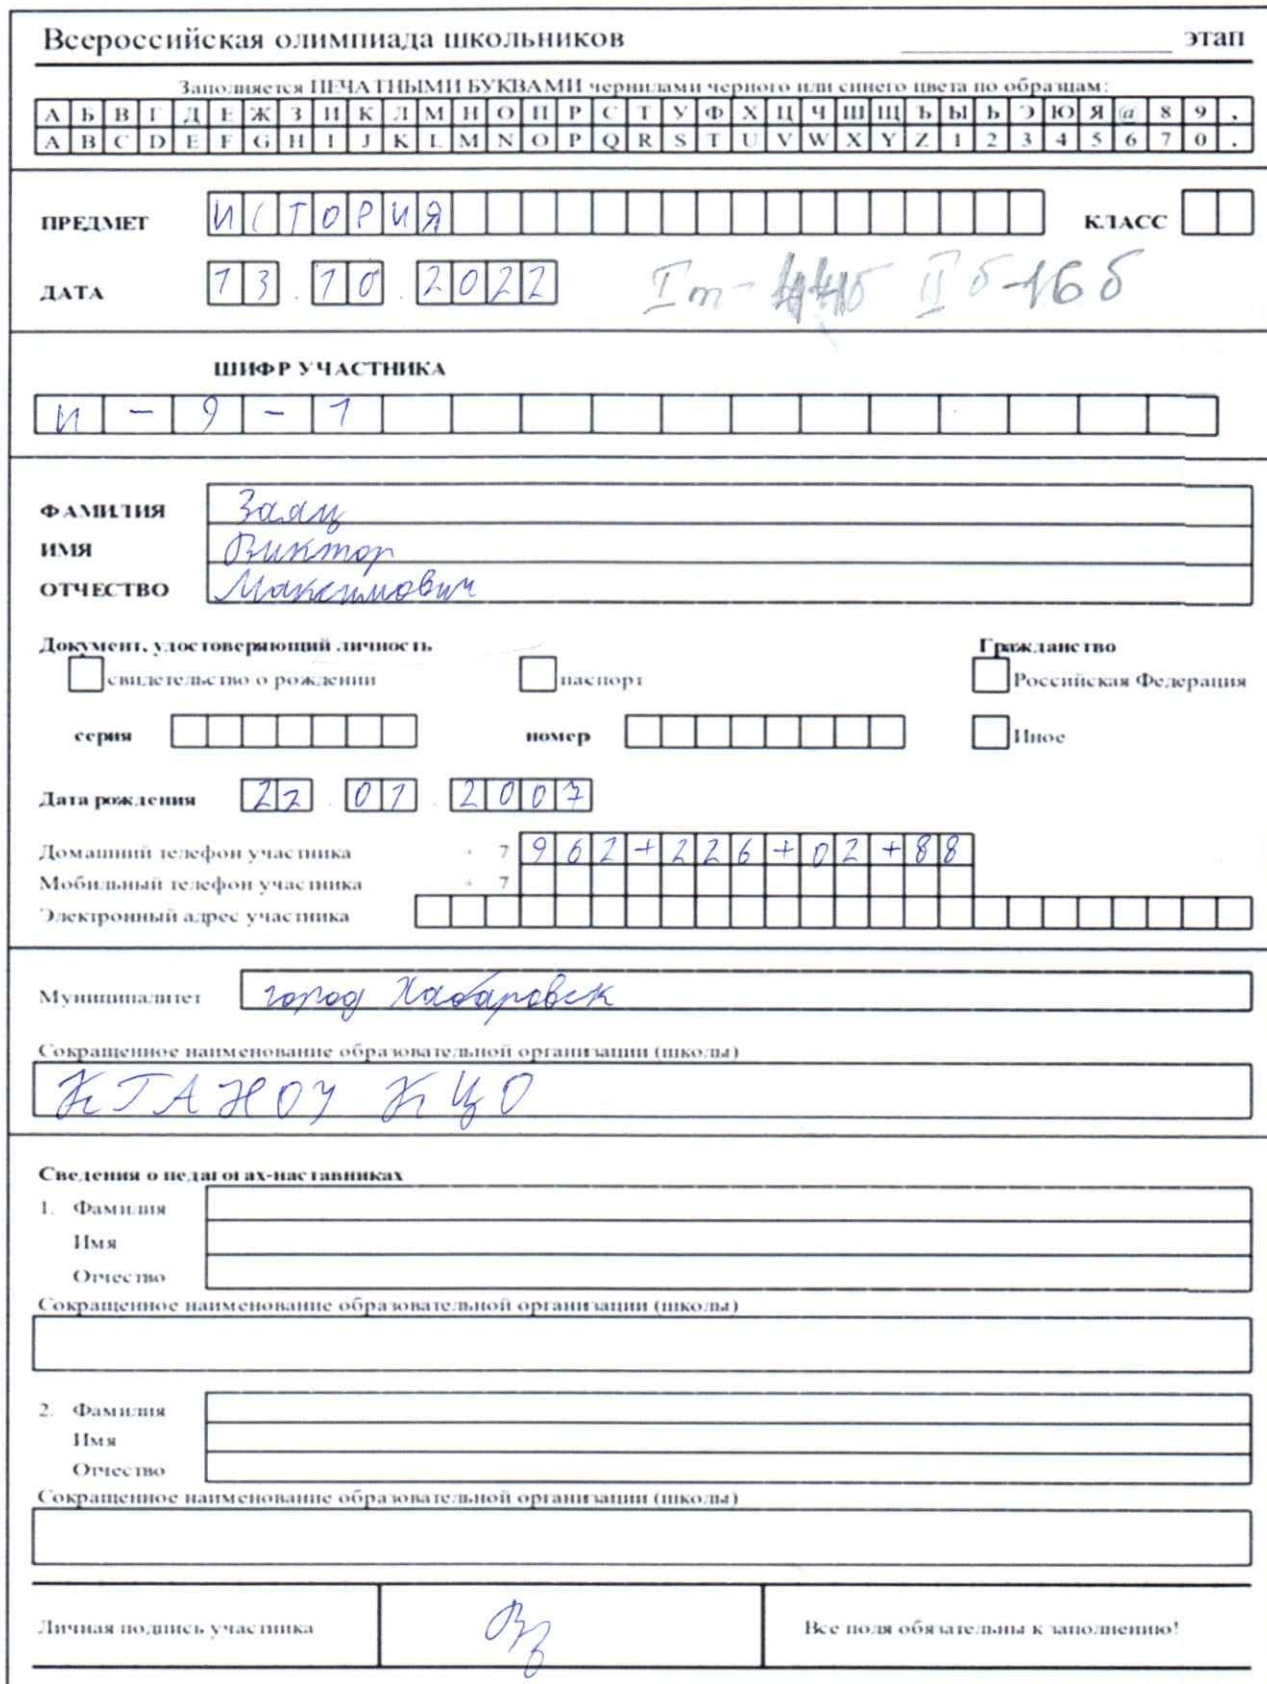 Всероссийская олимпиада школьников этап
Заполняется ПЕЧАТНЫМИ БУКВАМИ чернилами черного или синего цвета по образцам:
А Б В Г Д Е Ж З И К Л М Н О П Р С Т У Ф Х Ц Ч Ш Щ Ъ Ы Ь Э Ю Я @ 8 9 ,
A B C D E F G H I J K L M N O P Q R S T U V W X Y Z 1 2 3 4 5 6 7 0 .
ПРЕДМЕТ ИСТОРИЯ КЛАСС
ДАТА 13.10.2022 I т- II б-16б
ШИФР УЧАСТНИКА
И - 9 - 1
ФАМИЛИЯ Заяц
ИМЯ Виктор
ОТЧЕСТВО Максимович
Документ, удостоверяющий личность Гражданство
свидетельство о рождении паспорт Российская Федерация
серия номер Иное
Дата рождения 22.01.2007
Домашний телефон участника + 7 962+226+02+88
Мобильный телефон участника + 7
Электронный адрес участника
Муниципалитет город Хабаровск
Сокращенное наименование образовательной организации (школы)
КГАНОУ КЦО
Сведения о педагогах-наставниках
1. Фамилия
Имя
Отчество
Сокращенное наименование образовательной организации (школы)
2. Фамилия
Имя
Отчество
Сокращенное наименование образовательной организации (школы)
Личная подпись участника Все поля обязательны к заполнению!